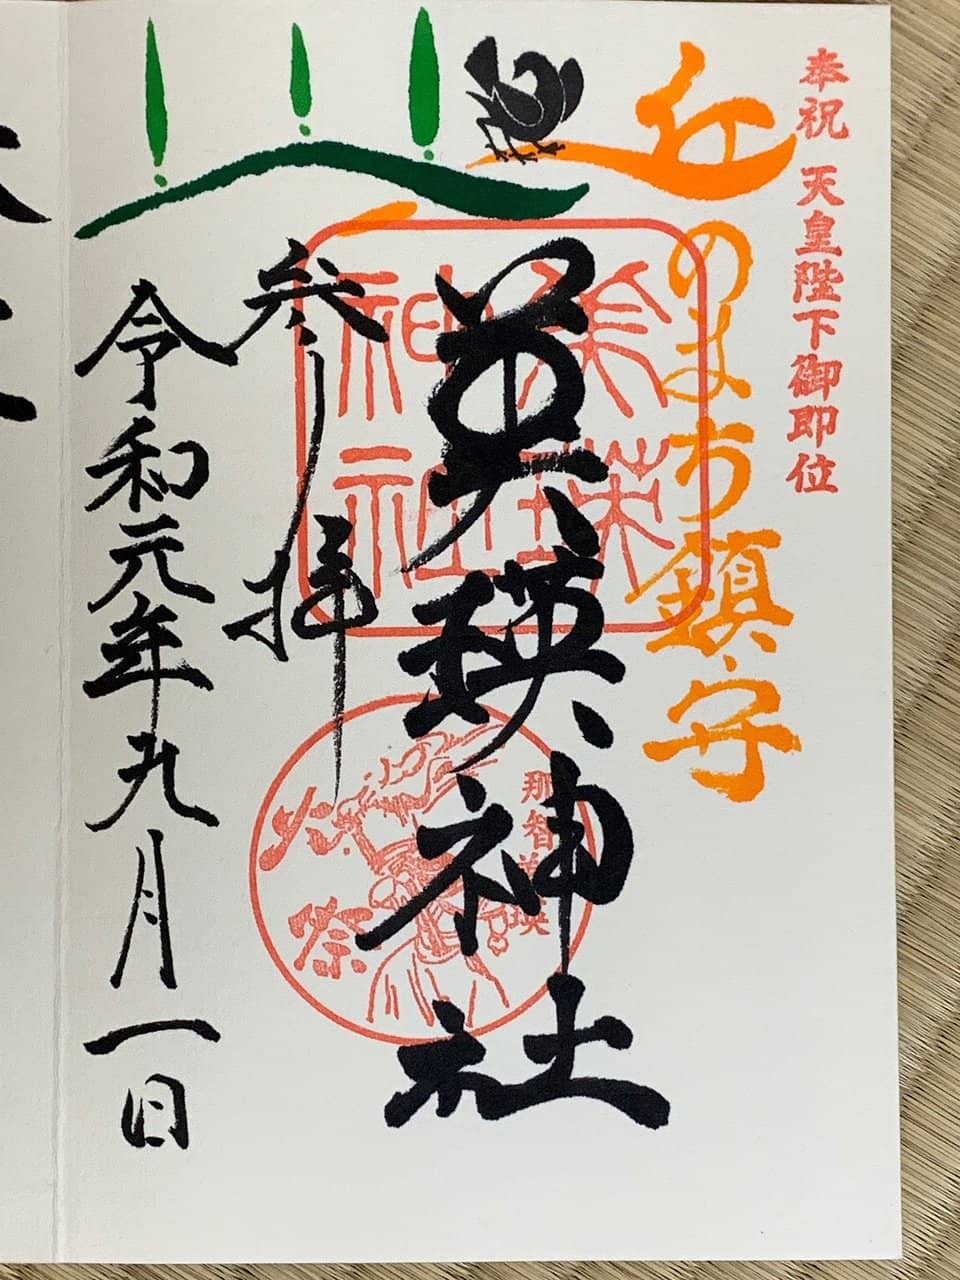 奉祝 天皇陛下御即位
丘のまち鎮守
美瑛神社
美瑛
神社
那智美瑛
火祭
参拝
令和元年九月一日